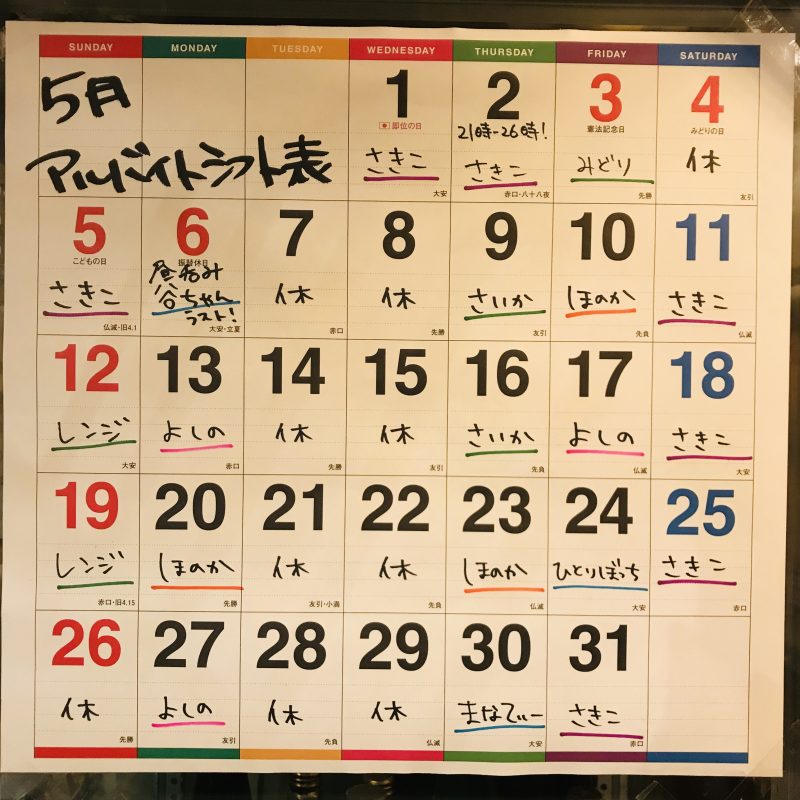 SUNDAY MONDAY TUESDAY WEDNESDAY THURSDAY FRIDAY SATURDAY
5月
アルバイトシフト表
1
即位の日
さきこ
大安
2
21時-26時!
さきこ
赤口・八十八夜
3
憲法記念日
みどり
先勝
4
みどりの日
休
友引
5
こどもの日
さきこ
仏滅・旧4.1
6
振替休日
昼呑み
谷ちゃん
ラスト!
大安・立夏
7
休
赤口
8
休
先勝
9
さいか
友引
10
ほのか
先負
11
さきこ
仏滅
12
レンジ
大安
13
よしの
赤口
14
休
先勝
15
休
友引
16
さいか
先負
17
よしの
仏滅
18
さきこ
大安
19
レンジ
赤口・旧4.15
20
ほのか
先勝
21
休
友引・小満
22
休
先負
23
ほのか
仏滅
24
ひとりぼっち
大安
25
さきこ
赤口
26
休
先勝
27
よしの
友引
28
休
先負
29
休
仏滅
30
まなてぃー
大安
31
さきこ
赤口